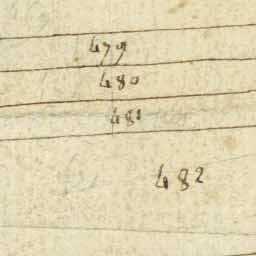 479
480
481
482